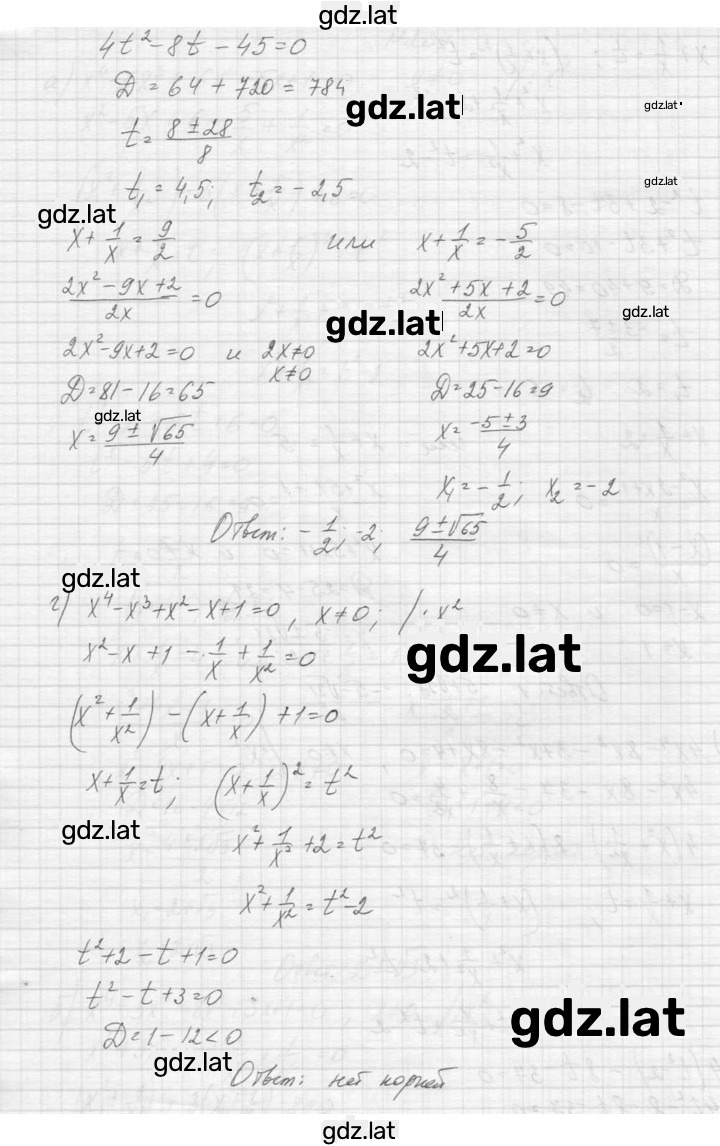 gdz.lat
4t² - 8t - 45 = 0
D = 64 + 720 = 784
gdz.lat
gdz.lat
t = (8 ± 28)/8
gdz.lat
t₁ = 4,5; t₂ = -2,5
gdz.lat
x + 1/x = 9/2 или x + 1/x = -5/2
(2x² - 9x + 2)/2x = 0 (2x² + 5x + 2)/2x = 0
gdz.lat
gdz.lat
2x² - 9x + 2 = 0 и 2x ≠ 0 2x² + 5x + 2 = 0
x ≠ 0
D = 81 - 16 = 65 D = 25 - 16 = 9
gdz.lat
x = (9 ± √65)/4 x = (-5 ± 3)/4
x₁ = -1/2; x₂ = -2
Ответ: -1/2; -2; (9 ± √65)/4
gdz.lat
г) x⁴ - x³ + x² - x + 1 = 0, x ≠ 0; /: x²
x² - x + 1 - 1/x + 1/x² = 0
gdz.lat
(x² + 1/x²) - (x + 1/x) + 1 = 0
x + 1/x = t; (x + 1/x)² = t²
gdz.lat
x² + 1/x² + 2 = t²
x² + 1/x² = t² - 2
t² + 2 - t + 1 = 0
t² - t + 3 = 0
gdz.lat
D = 1 - 12 < 0
gdz.lat
Ответ: нет корней
gdz.lat